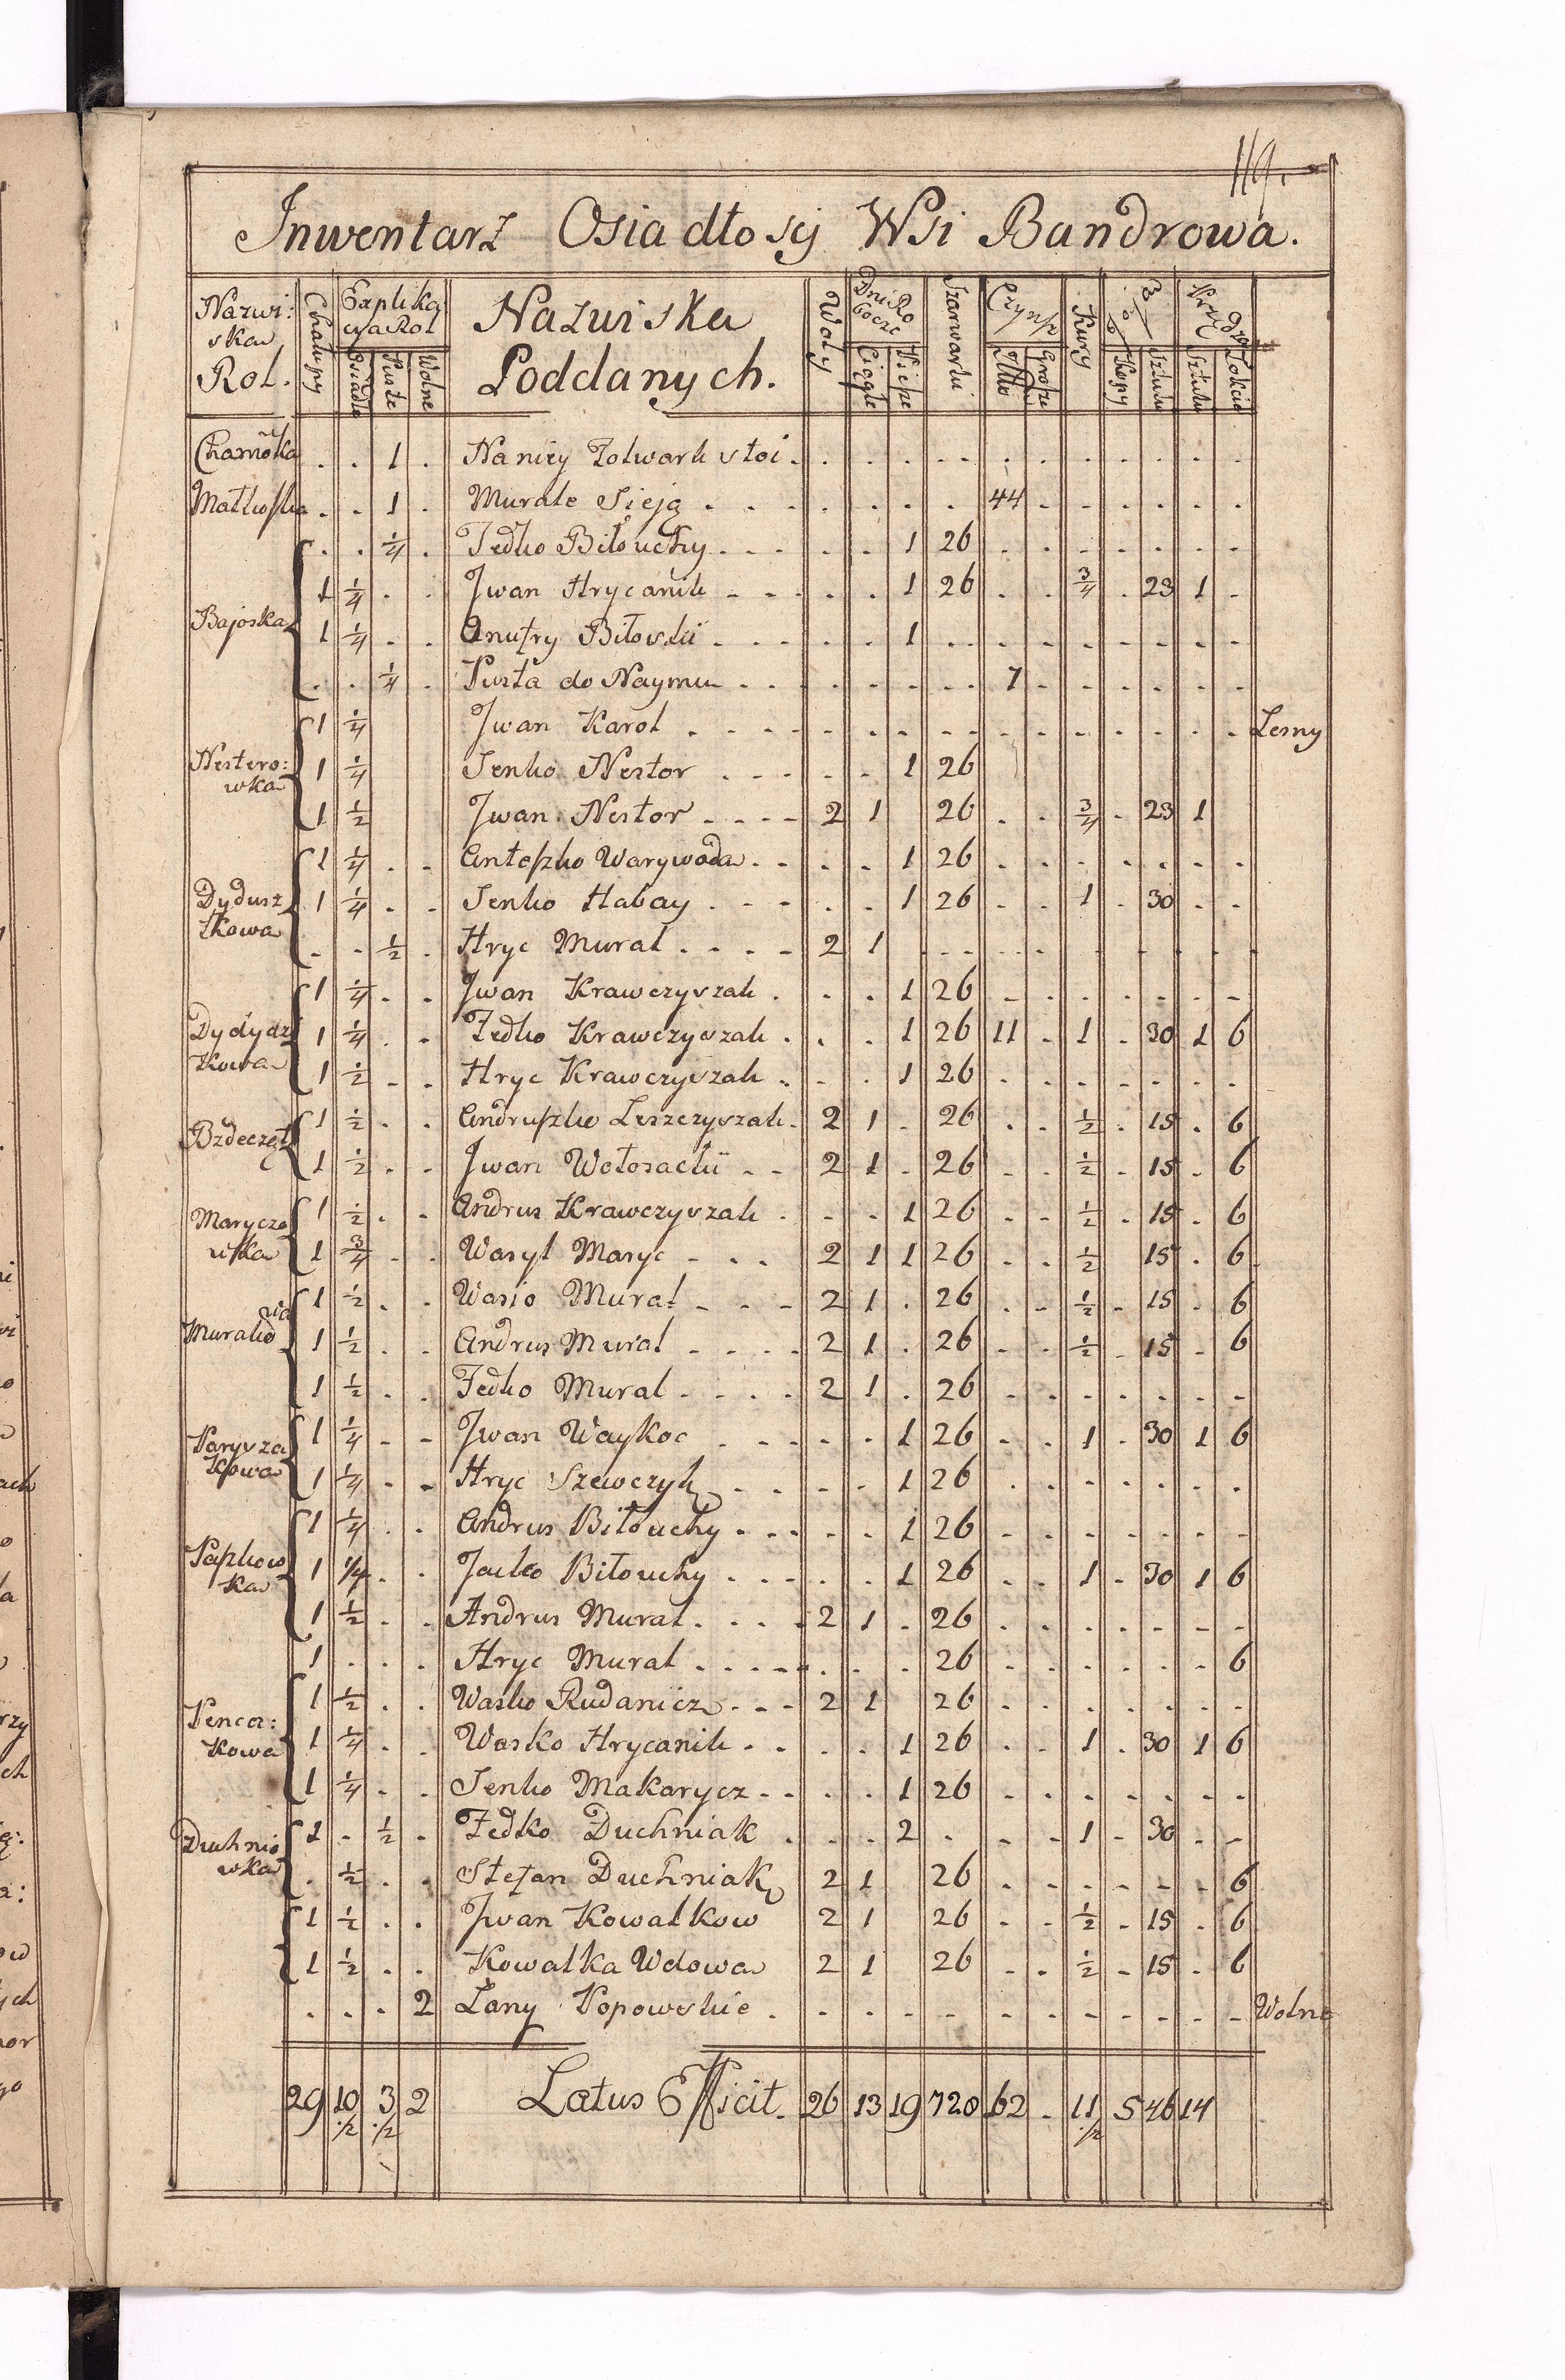 119.
Inwentarz Osiadłosy Wsi Bandrowa.
Nazwi: Chałupy Explika Nazwiska Woły Dni Ro Szarwarki Czynsz Kury
ska cya Rol Poddanych. bocze
Rol. Osiadłe Puste Wolne Ciągłe Piesze Złłe Grosze Kopy Sztuki Sztuki Łokcie
. . 1 . Na niey Folwark stoi . . . . . . . . . . . .
. . 1 . Murale Sieją . . . . . 44 . . . . . .
. . 1/4 . Fedko Biłouchy . . . 1 26 . . . . . . .
1 1/4 . . Jwan Hrycanik . . . 1 26 . . 3/4 . 23 1 .
Bajoska 1 1/4 . . Onufry Biłoskii . . . 1 . . . . . . . .
. . 1/4 . Pusta do Naymu . . . . . 7 . . . . . .
1 1/4 Jwan Karol . . . . . . . . . . . . Lesny
Nestero: 1 1/4 Senko Nestor . . . 1 26
wka 1 1/2 Jwan Nestor . . . . 2 1 26 . . 3/4 . 23 1
1 1/4 . . Anteszko Warywoda . . . 1 26 . . . . . . .
Dydusz 1 1/4 . . Senko Habay . . . 1 26 . . 1 . 30 . .
kowa . . 1/2 . Hryc Mural . . . . 2 1 . . . . . . . .
1 1/4 . . Jwan Krawczyszak . . . 1 26 . . . . . . .
Dydydz 1 1/4 . . Fedko Krawczyszak . . . 1 26 11 . 1 . 30 1 6
kowa 1 1/2 . . Hryc Krawczyszak . . . 1 26 . . . . . . .
1 1/2 . . Andruszko Leszczyszak . 2 1 . 26 . . 1/2 . 15 . 6
1 1/2 . . Jwan Wołosackii . . 2 1 . 26 . . 1/2 . 15 . 6
Marycze 1 1/2 . . Andrus Krawczyszak . . . 1 26 . . 1/2 . 15 . 6
wska 1 3/4 . . Wasyl Maryc . . . 2 1 1 26 . . 1/2 15 . 6
1 1/2 . . Wasio Mural . . . 2 1 . 26 . . 1/2 . 15 . 6
1 1/2 . . Andrus Mural . . . . 2 1 . 26 . . 1/2 . 15 . 6
1 1/2 . . Fedko Mural . . . . 2 1 . 26 . . . . . . .
Parysza 1 1/4 . . Jwan Waykoc . . . 1 26 . . 1 . 30 1 6
kowa 1 1/4 . . Hryc Szewczyk . . . 1 26 . . . . . . .
1 1/4 . . Andrus Biłouchy . . . 1 26 . . . . . . .
Paszkow 1 1/4 . . Jacko Biłouchy . . . 1 26 . . 1 . 30 1 6
ka 1 1/2 . . Andrus Mural . . . . 2 1 . 26 . . . . . . .
1 . . . Hryc Mural . . . . . 26 . . . . . . 6
1 1/2 . . Wasko Rudanicz . . . 2 1 26 . . . . . . .
Penca: 1 1/4 . . Wasko Hrycanik . . . 1 26 . . 1 . 30 1 6
kowa 1 1/4 . . Senko Makarycz . . . 1 26 . . . . . . .
Duchnio 1 . 1/2 . Fedko Duchniak . . . 2 . . . 1 . 30 . .
wka . 1/2 . . Stefan Duchniak 2 1 26 . . . . . . 6
1 1/2 . . Jwan Kowalkow 2 1 26 . . 1/2 . 15 . 6
1 1/2 . . Kowalka Wdowa 2 1 26 . . 1/2 . 15 . 6
. . . 2 Łany Popowskie . . . . . . . . . . . . Wolne
29 10 1/2 3 1/2 2 Latus Efficit. 26 13 19 728 62 . 11 1/2 5 46 14